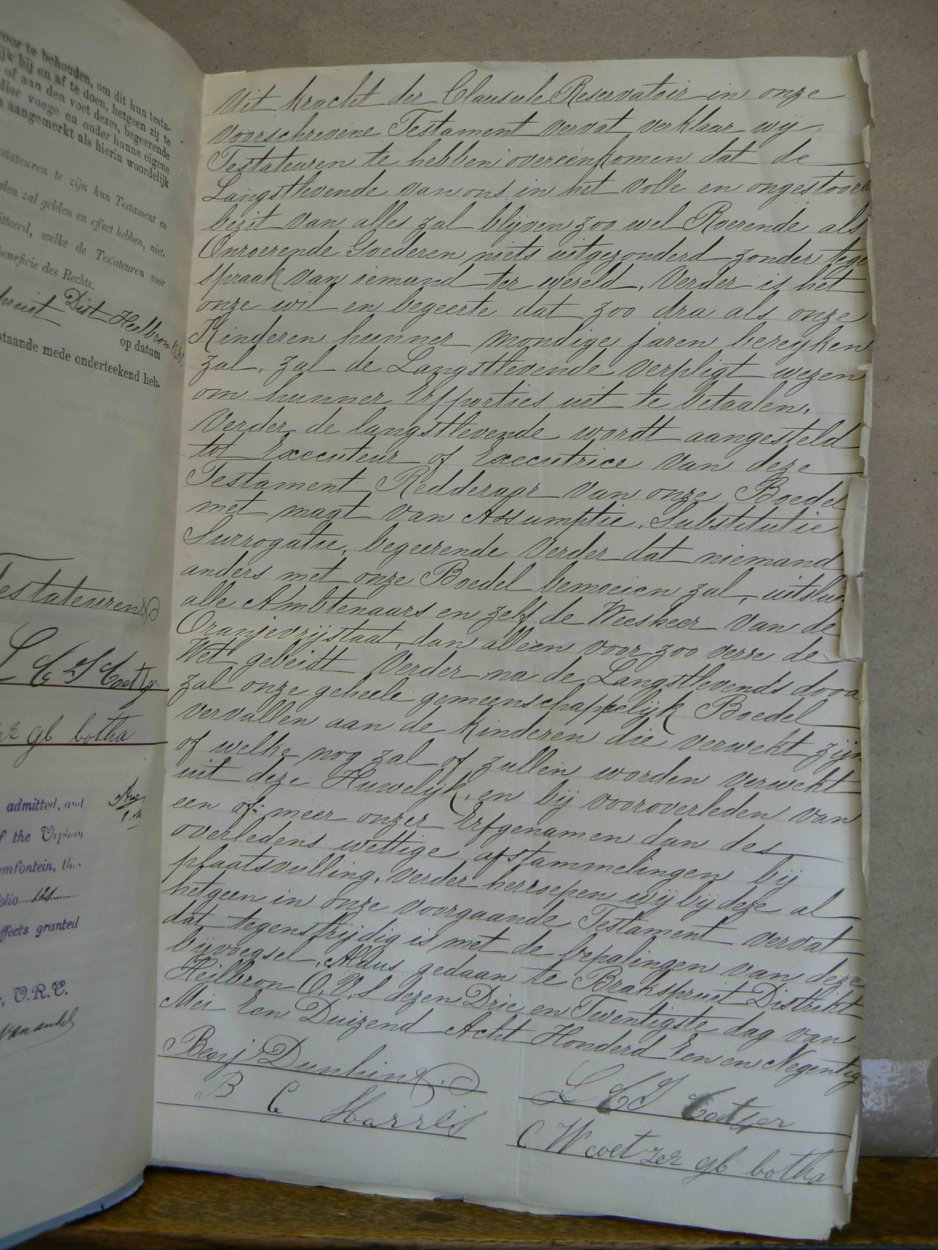 voor te behouden, om dit hun testa-
bij en af te doen, hetgeen zij te
of aan den voet dezes, begeerende
dier voege en onder hunne eigene
aangemerkt als hierin woordelijk
Testateuren te zijn hun Testament en
zal gelden en effect hebben, niet-
welke de Testateuren voor
beneficie des Rechts.
Dist Heilbron
op datum
staande mede onderteekend heb-
Testateuren
L C S Coetzer
gb botha
admitted, and
of the Orphan
the
folio 124
effects granted
O.R.C.
Uit kracht der Clausule Reservatoir in onze
voorschrevene Testament vervat verklaar wij
Testateuren te hebben overeenkomen dat de
Langstlevende van ons in het volle en ongestoord
bezit van alles zal blijven zoo wel Roerende als
Onroerende Goederen niets uitgezonderd zonder tege
spraak van iemand ter wereld. Verder is het
onze wil en begeerte dat zoo dra als onze
Kinderen hunner mondige jaren bereyken
zal, zal de Langstlevende verpligt wezen
om hunner Erfporties uit te betaalen.
Verder de langstlevende wordt aangesteld
tot Executeur of Executrice van deze
Testament Redderaar van onze Boedel
met magt van Assumptie, Substitutie
Surrogatie, begeerende Verder dat niemand
anders met onze Boedel bemoeien zal, uitslui
alle Ambtenaars en zelf de Weesheer van de
Oranjevrijstaat, dan alleen voor zoo verre de
Wet gebeidt Verder na de Langstlevends dood
zal onze geheele gemeenschappelijk Boedel
vervallen aan de kinderen die verwekt zijn
of welke nog zal of zullen worden verwekt
uit deze Huwelijk, en bij vooroverleden van
een of meer onzer Erfgenamen dan des
overledens wettige afstammelingen bij
plaatsvulling, Verder herroepen wij bij deze al
hetgeen in onze voorgaande Testament vervat
dat tegenstrijdig is met de bepalingen van deze
bijvoegsel, Aldus gedaan te Brakspruit Distrikt
Heilbron O.V.S dezen Drie en Twentigste dag van
Mei Een Duizend Acht Honderd Een en Negentig
L C S Coetzer
B C Harris
C W coetzer gb botha